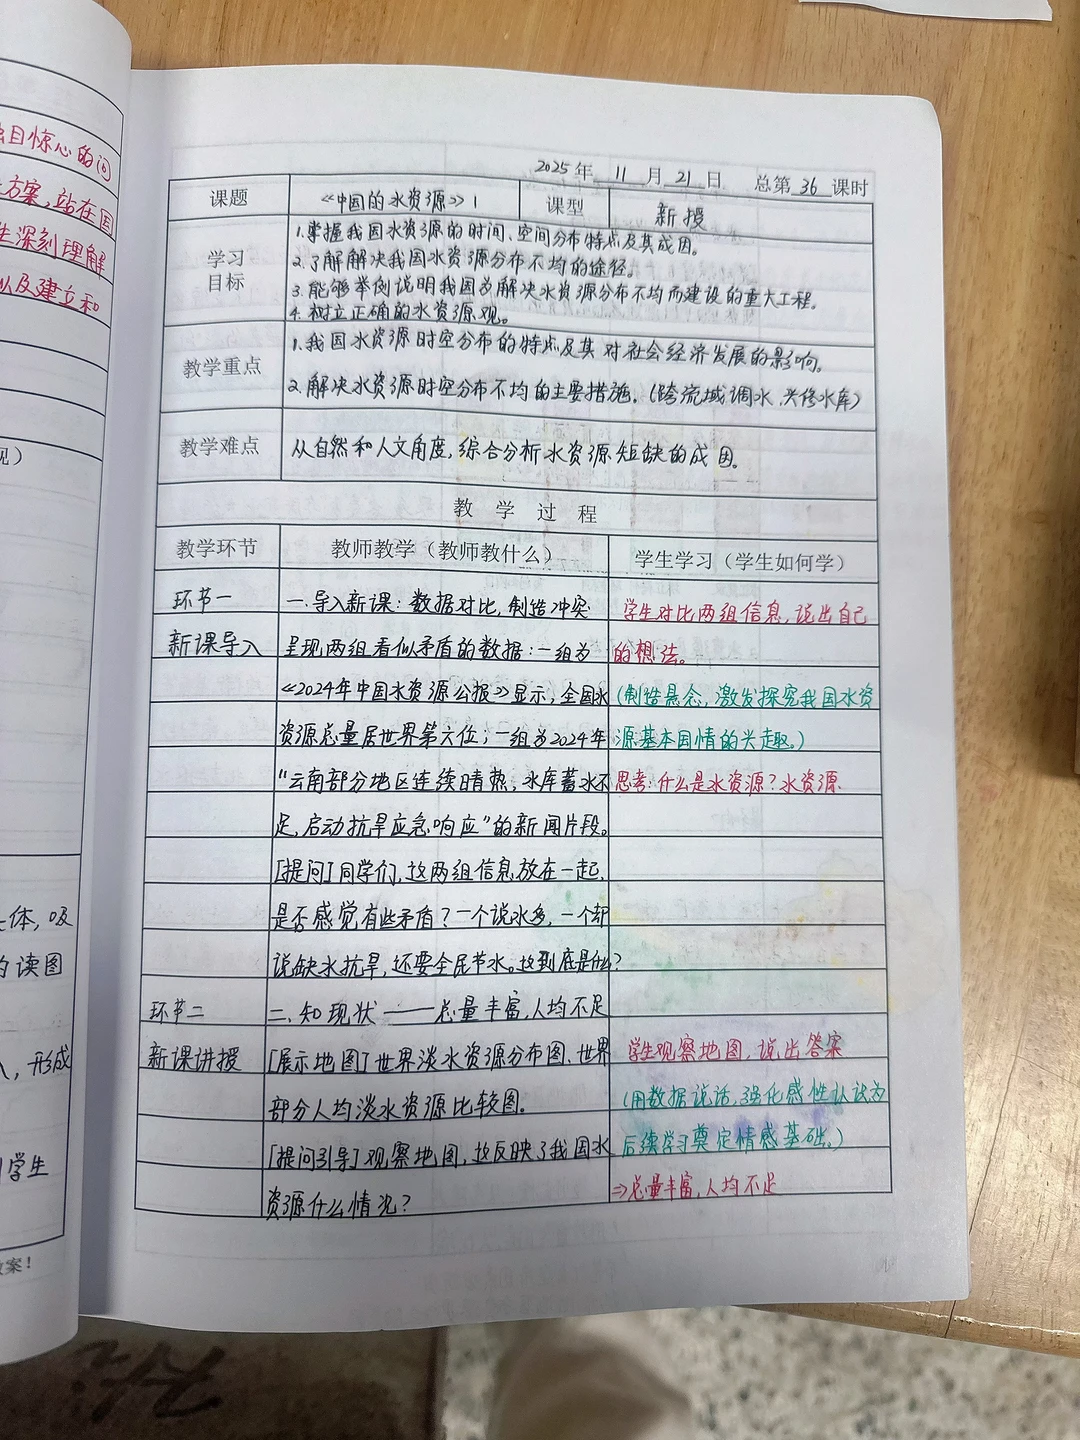 目惊心的问
方案，站在国
生深刻理解
以及建立和
见）
体，吸
读图
，形成
学生
案！
2025年 11 月 21 日 总第 36 课时
课题 《中国的水资源》1 课型 新授
学习目标
1.掌握我国水资源的时间、空间分布特点及其成因。
2.了解解决我国水资源分布不均的途径。
3.能够举例说明我国为解决水资源分布不均而建设的重大工程。
4.树立正确的水资源观。
教学重点
1.我国水资源时空分布的特点及其对社会经济发展的影响。
2.解决水资源时空分布不均的主要措施。（跨流域调水、兴修水库）
教学难点 从自然和人文角度，综合分析水资源短缺的成因。
教 学 过 程
教学环节 教师教学（教师教什么） 学生学习（学生如何学）
环节一 一.导入新课：数据对比，制造冲突 学生对比两组信息，说出自己
新课导入 呈现两组看似矛盾的数据：一组为 的想法。
《2024年中国水资源公报》显示，全国水 （制造悬念，激发探究我国水资
资源总量居世界第六位；一组为2024年 源基本国情的兴趣。）
“云南部分地区连续晴热，水库蓄水不 思考：什么是水资源？水资源
足，启动抗旱应急响应”的新闻片段。
[提问]同学们，这两组信息放在一起，
是否感觉有些矛盾？一个说水多，一个却
说缺水抗旱，还要全民节水。这到底是什么？
环节二 二.知现状——总量丰富，人均不足
新课讲授 [展示地图]世界淡水资源分布图、世界 学生观察地图，说出答案
部分人均淡水资源比较图。 （用数据说话，强化感性认识为
[提问引导]观察地图，这反映了我国水 后续学习奠定情感基础。）
资源什么情况？ ⇒总量丰富，人均不足